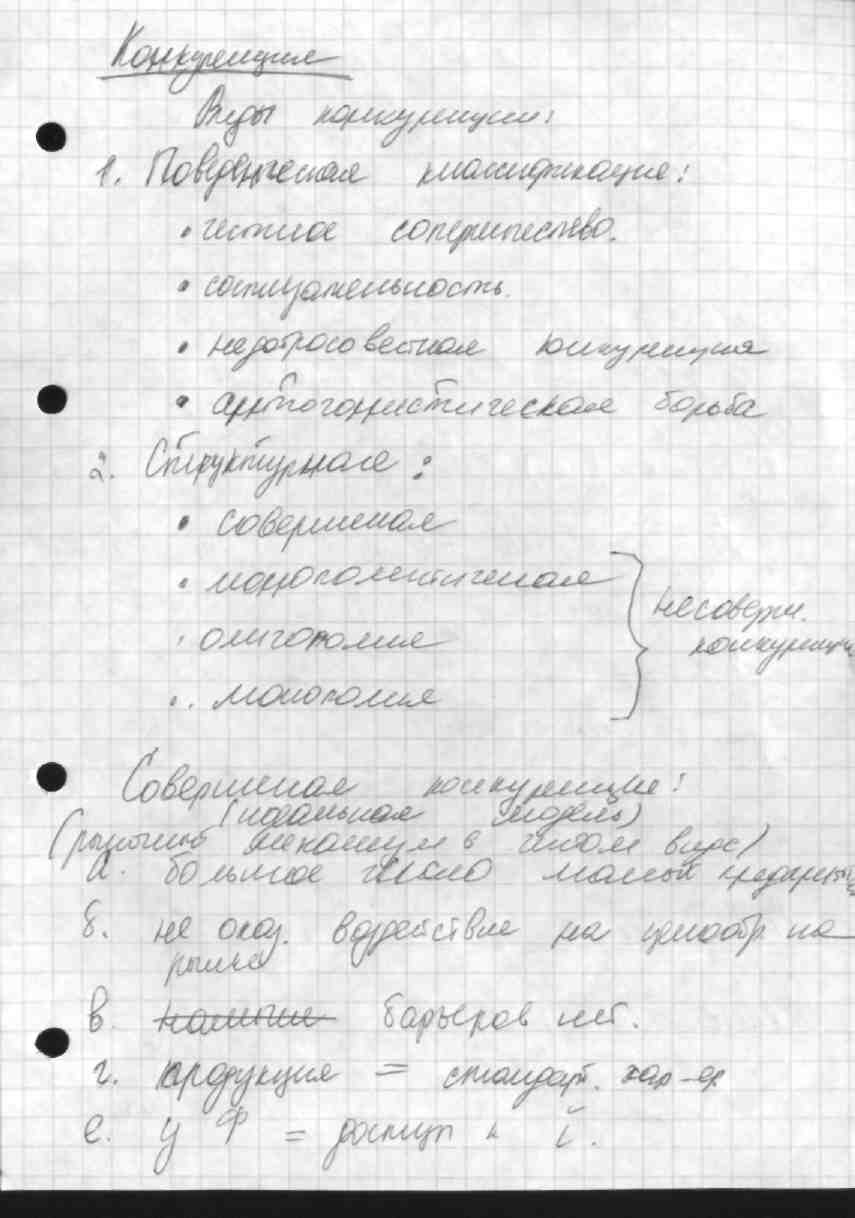 Конкуренция
Виды конкуренции:
1. Поведенческая классификация:
• честное соперничество.
• состязательность.
• недобросовестная конкуренция
• антогонистическая борьба
2. Структурная:
• совершеная
• монополистическая
• олигополия
• монополия
несоверш.
конкуренции
Совершеная конкуренция:
(идеальная модель)
(рыночный механизм в чистом виде)
а. большое число малых предприятий
б. не оказ. воздействие на ценообр. на
рынке
в. наличие барьеров нет.
г. продукция = стандарт. хар-ер
е. у Ф = доступ к i.